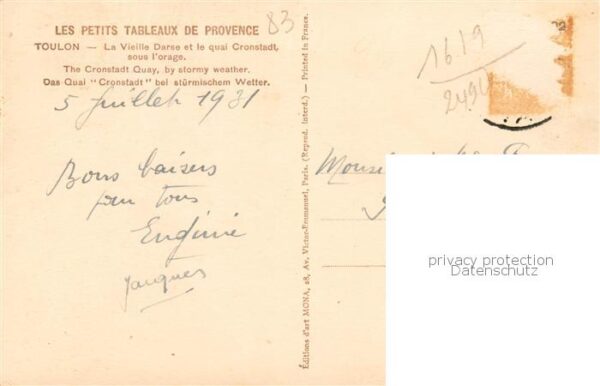 LES PETITS TABLEAUX DE PROVENCE
83
TOULON — La Vieille Darse et le quai Cronstadt,
sous l'orage.
The Cronstadt Quay, by stormy weather.
Das Quai "Cronstadt" bei stürmischem Wetter.
5 Juillet 1931
Bons baisers
pour tous
Eugénie
Jacques
Éditions d'art MONA, 28, Av. Victor-Emmanuel, Paris. (Reprod. Interd.) — Printed in France.
1619
2494
privacy protection
Datenschutz